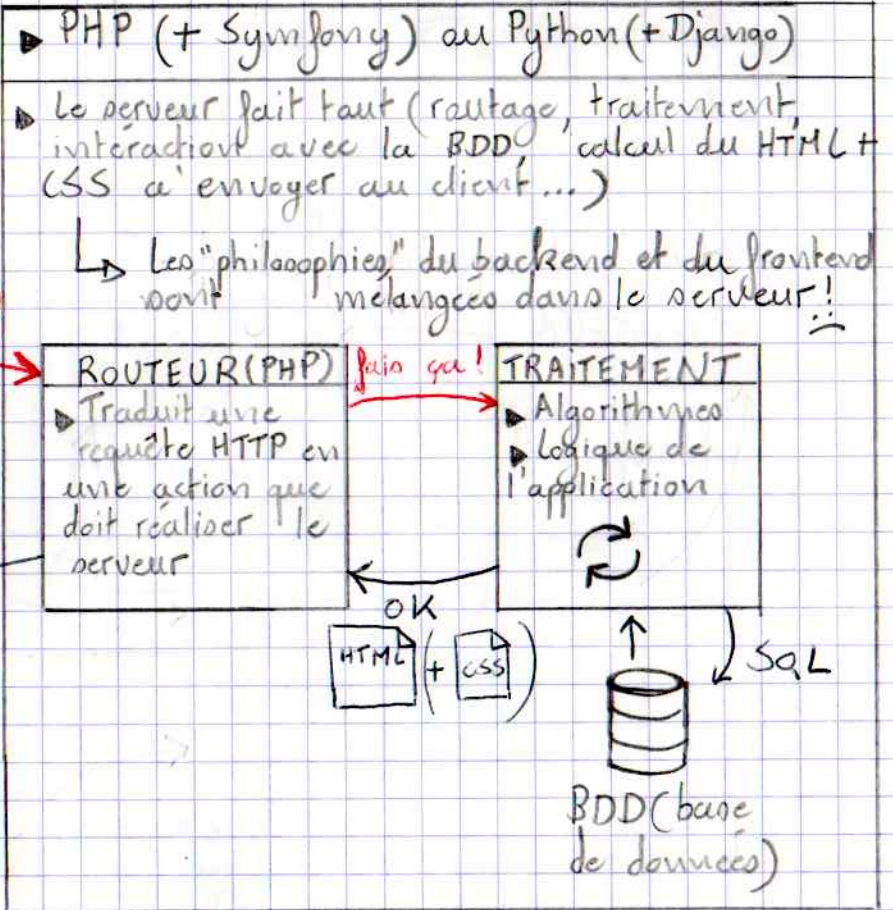 ▶ PHP (+ Symfony) ou Python (+Django)
▶ Le serveur fait tout (routage, traitement,
intéraction avec la BDD, calcul du HTML +
CSS à envoyer au client...)
↳ Les "philosophies" du backend et du frontend
sont mélangées dans le serveur !
ROUTEUR (PHP)
▶ Traduit une
requête HTTP en
une action que
doit réaliser le
serveur
fais ça !
TRAITEMENT
▶ Algorithmes
▶ Logique de
l'application
OK
HTML (+ CSS)
SQL
BDD (base
de données)